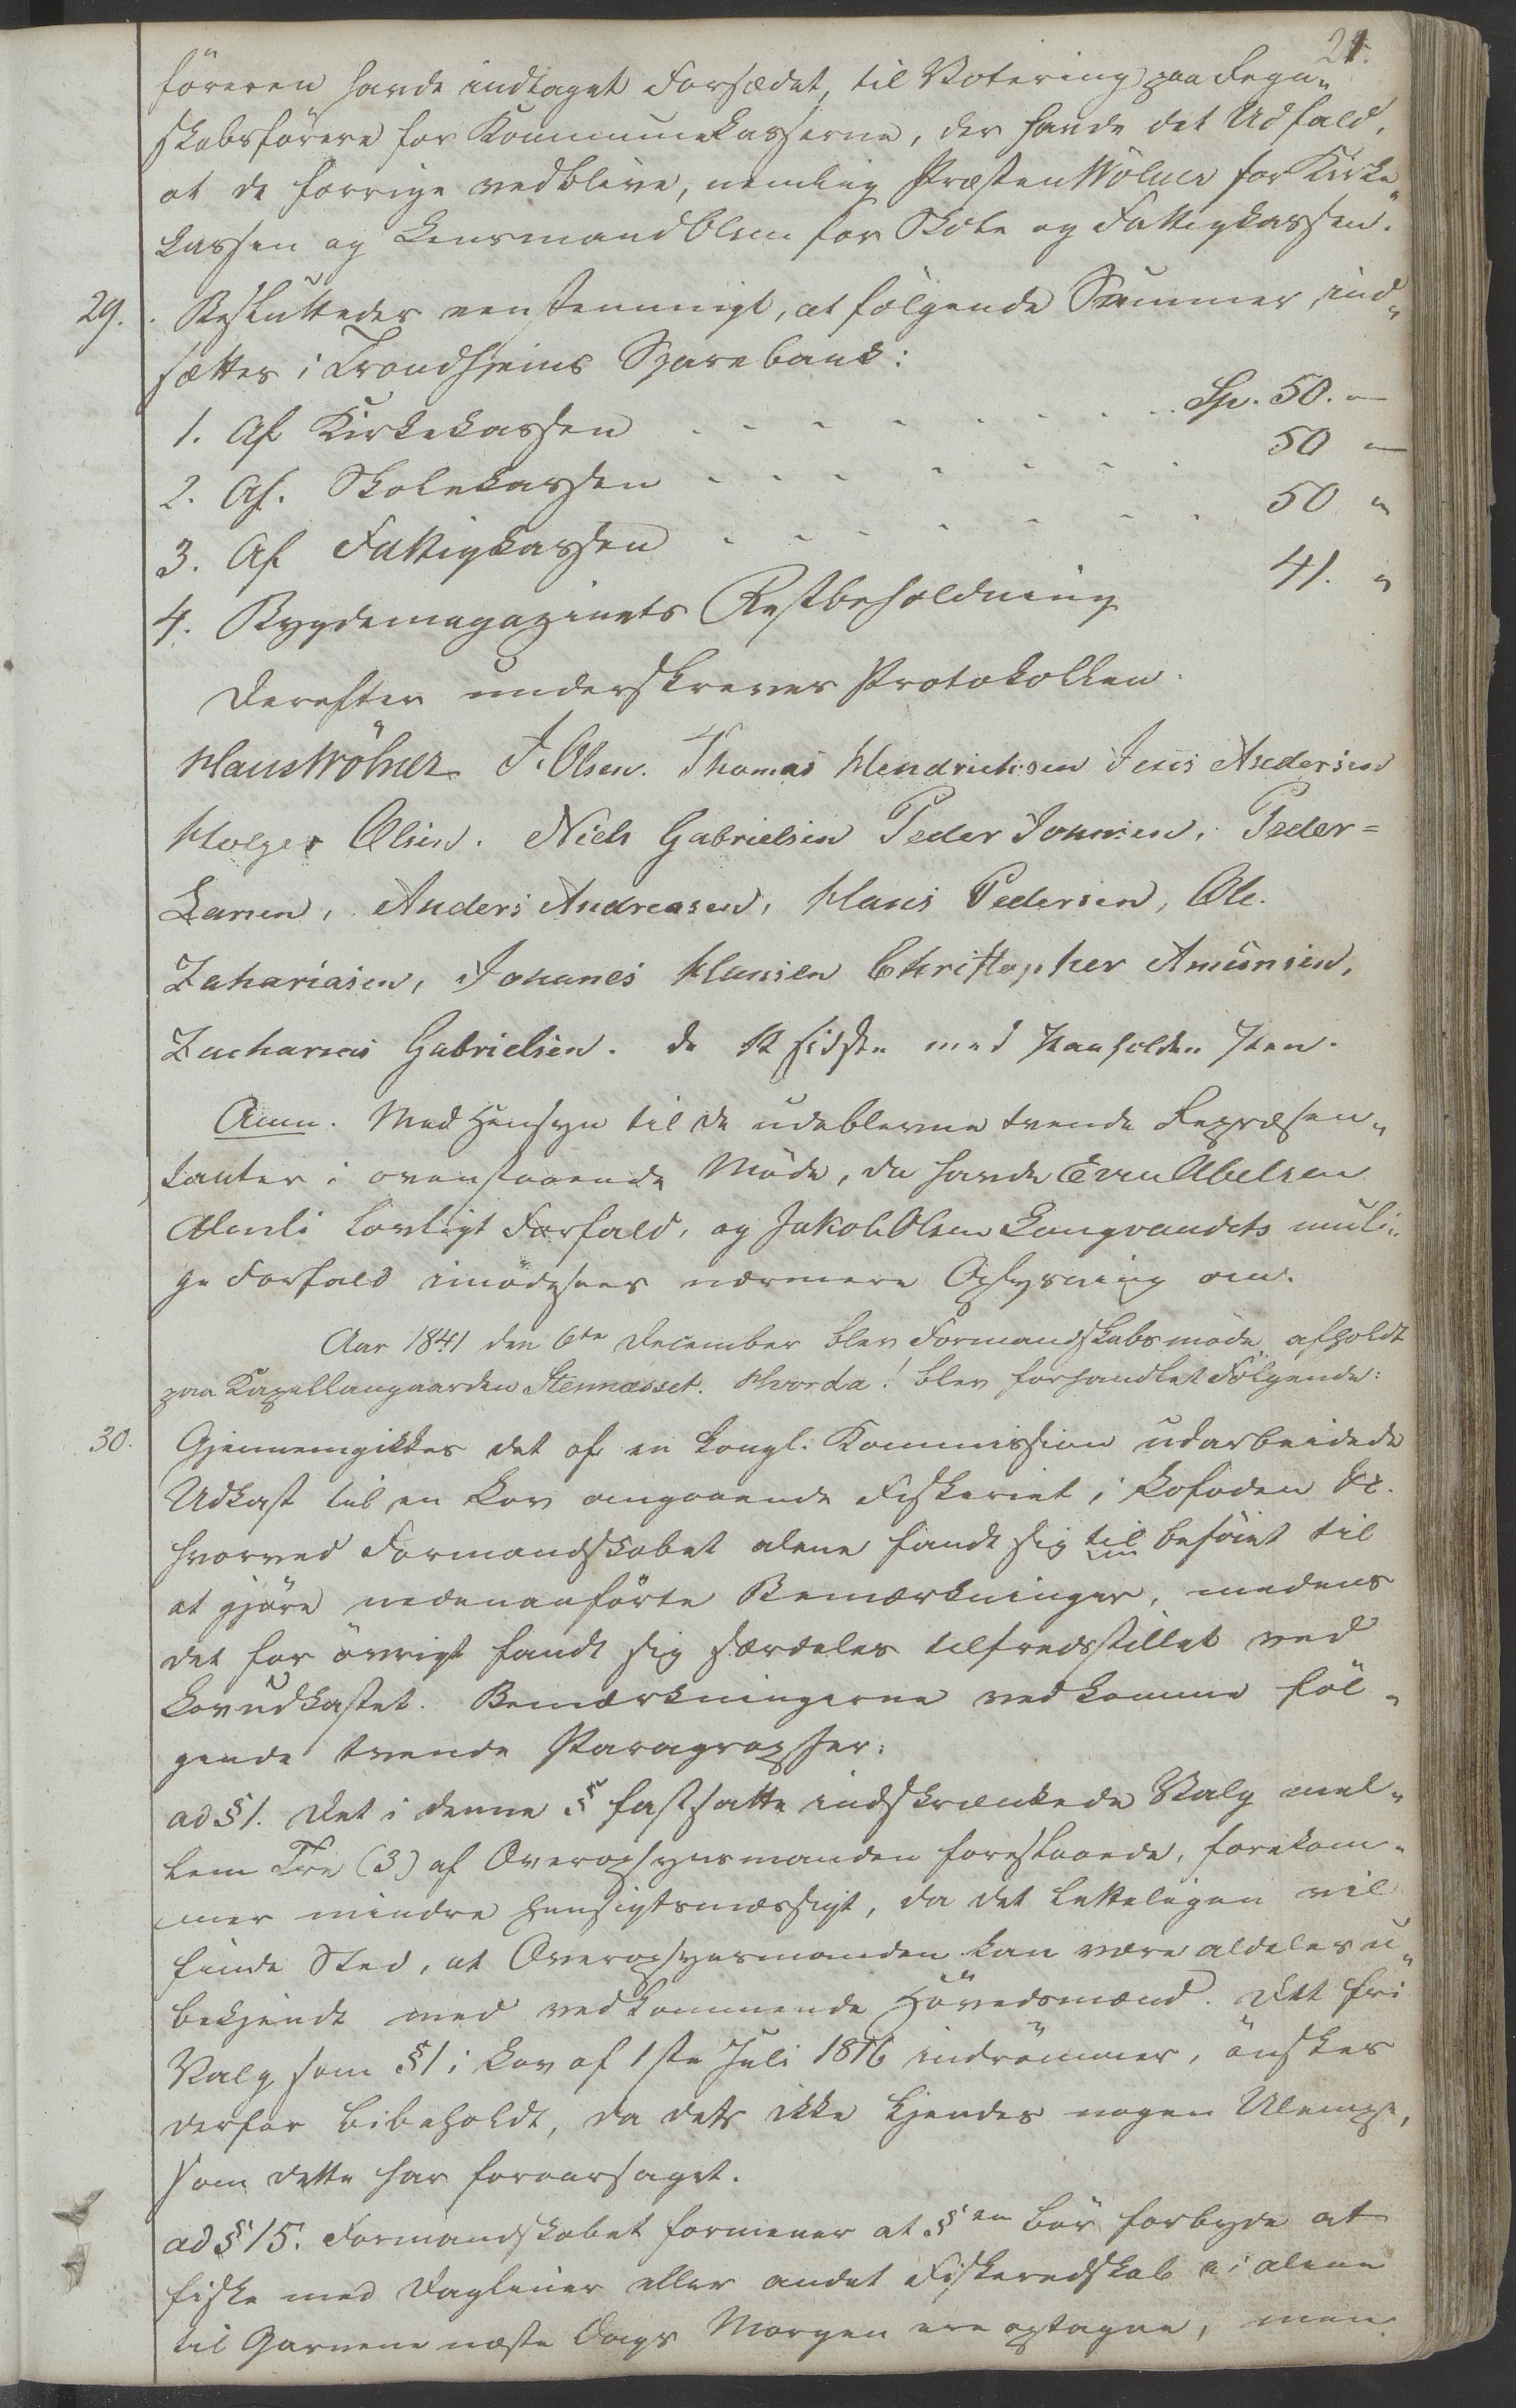 21.
föreren havde indtaget Forsædet, til Votering paa Regn„
skabsförere for Kommunekasserne, der havde det Udfald,
at de forrige vedblive, nemlig Præsten Wölner for Kirke„
kassen og Lensmand Olsen for Skole og Fattigkassen.
29. Besluttedes eenstemmigt, at fölgende Summer ind„
sættes i Trondhjems Sparebank:
1. Af Kirkekassen - - - - - - - Sp. 50. "
2. Af. Skolekassen - - - - - - - 50 "
3. Af Fattigkassen - - - - - - - 50 "
4. Bygdemagazinets Restbeholdning 41. "
Derefter underskreves Protokollen.
Hans Wölner J. Olsen. Thomas Hendrichsen Jens Andersen
Holger Olsen. Niels Gabrielsen Peder Johnsen, Peder=
Larsen, Anders Andreasen, Hans Pedersen, Ole.
Zahariasen, Johanes Hansen Christopher Amunsen,
Zacharias Gabrielsen. de 12 sidste med paaholden Pen.
Anm. Med Hensyn til de udeblevne tvende Repræsen„
tanter i ovenstaaende Möde, da havde Even Abelsen
Almli lovligt Forfald, og Jakob Olsen Langvandets muli„
ge Forfald imödesees nærmere Oplysning om.
Aar 1841 den 6te December blev Formandskabsmöde afholdt
paa Kapellangaarden Stennæsset. Hvorda! blev forhandlet Fölgende:
30. Gjennemgikkes det af en kongl. Kommission udarbeidede
Udkast til en Lov angaaende Fiskeriet i Lofoden &c.
hvorved Formandskabet alene fandt sig til beföiet til
at gjöre nedenanförte Bemærkninger, medens
det for övrigt fandt sig særdeles tilfredsstillet ved
Lovudkastet. Bemærkningerne vedkomme föl„
gende tvende Paragrapher:
ad § 1. Det i denne § fastsatte indskrænkede Valg mel„
lem Tre (3) af Overopsynsmanden foreslaaede, forekom„
mer mindre hensigtsmæssigt, da det letteligen vil
finde Sted, at Overopsynsmanden kan være aldeles u„
bekjendt med vedkommende Hövedsmænd. Det fri
Valg som § 1 i Lov af 1ste Juli 1816 indrömmer, önskes
derfor bibeholdt, da dets ikke kjendes nogen Ulempe,
som dette har foraarsaget.
ad § 15. Formandskabet formener at §en bör forbyde at
fiske med Dagliner eller andet Fiskeredskab ei alene
til Garnene næste Dags Morgen ere optagne, men